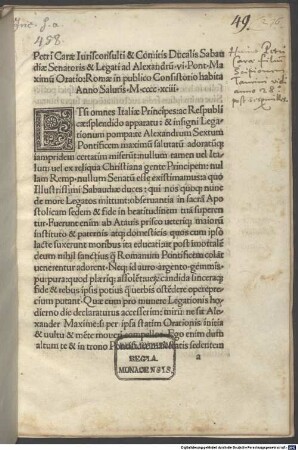 49.
Inc. s. a.
488.
Petri Caræ Iuriscōsulti & Comitis Ducalis Sabau
diæ Senatoris & Legati ad Alexandrū·vi·Pont·Ma
ximū Oratio: Romæ in publico Consistorio habita
Anno Salutis·M·cccc·xciii·
Etsi omnes Italiæ Principes: ac Respubli
cæ: splendido apparatu: & insigni Lega
tionum pompa: te Alexandrum Sextum
Pontificem maximū salutatū adoratūq;
iampridem certatim miserūt: nullum tamen uel Ita
lum: uel ex reliqua Christiana gente Principem: nul
lam Remp·nullum Senatū esse existimamus: a quo
Illustrissimi Sabaudiæ duces: qui nos quoq; nunc
de more Legatos mittunt: obseruantia in sacrā Apo
stolicam sedem & fide in beatitudinem tuā superen
tur. Fuerunt enim ab Atauis prisco ueteriq; maiorū
instituto & paternis atq; domesticis quos cum ipso
lacte suxerunt moribus ita educati: ut post imortalē
deum nihil sanctius q̃ Romanum Pontificem colāt
uenerentur adorent. Neq; id auro·argento·gemmis·
purpura: quod pleriq; assolēt: uerū candida sincera q;
fide & rebus ipsis potius q̃ uerbis ostēdere operepre
cium putant. Quæ cum pro munere Legationis ho
dierno die declaraturus accesserim: mirū ne sit Ale
xander Maxime: si per ipsa statim Orationis initia
& uultu & mēte moueri
altum te & in trono Pontificatus maiestatis sedentem
a
REGIA
MONACENSIS.